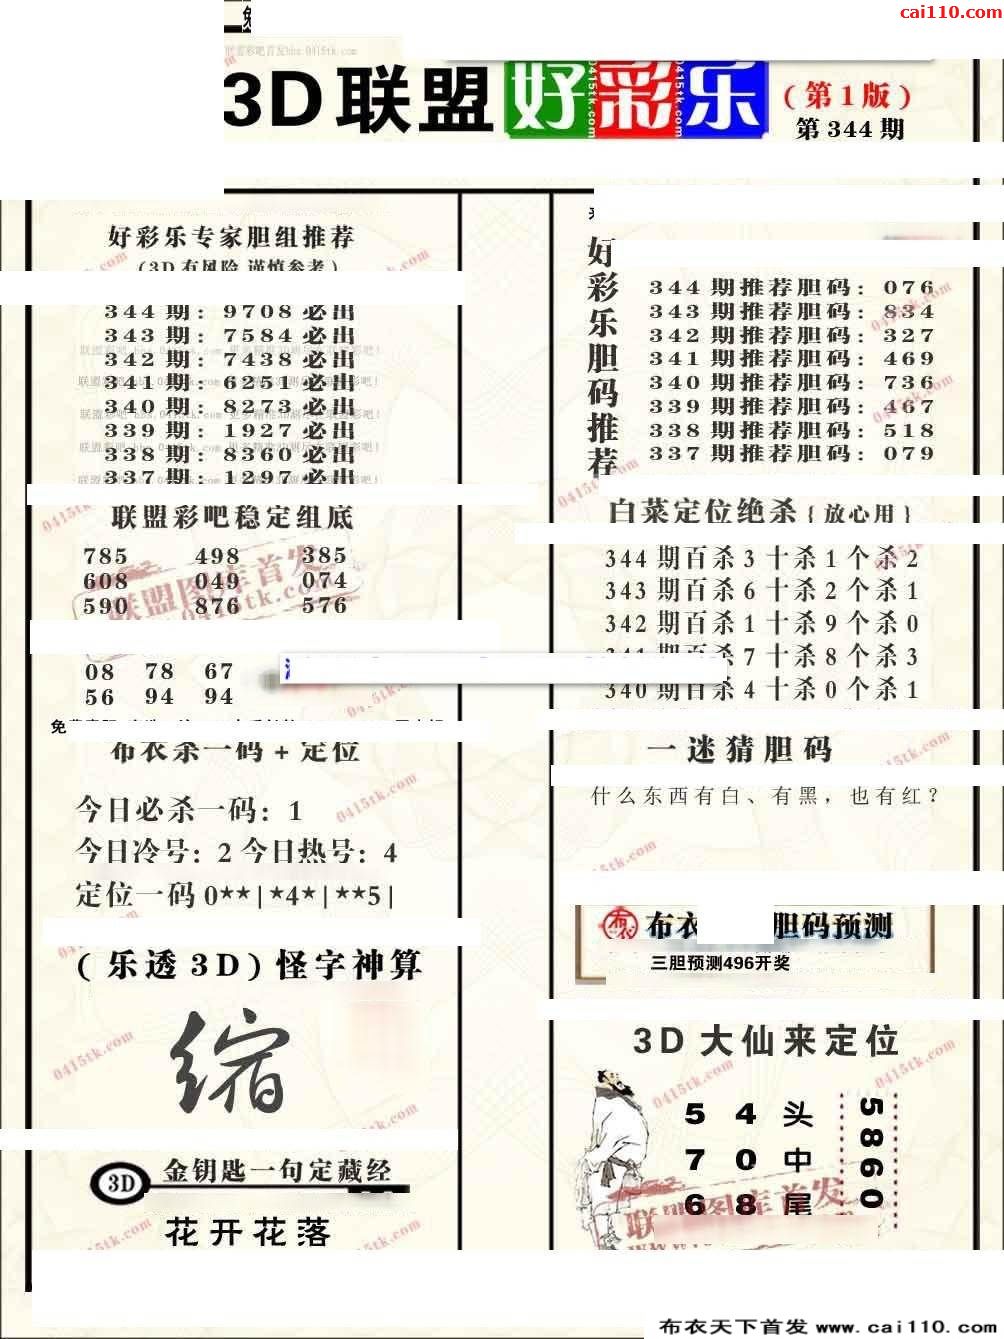 cai110.com
3D联盟 好彩乐 (第1版)
第344期
好彩乐专家胆组推荐
(3D有风险 谨慎参考)
344期: 9708必出
343期: 7584必出
342期: 7438必出
341期: 6251必出
340期: 8273必出
339期: 1927必出
338期: 8360必出
337期: 1297必出
联盟彩吧稳定组底
785 498 385
608 049 074
590 876 576
08 78 67
56 94 94
布衣杀一码+定位
今日必杀一码: 1
今日冷号: 2 今日热号: 4
定位一码 0**|*4*|**5|
(乐透3D)怪字神算
缩
3D 金钥匙一句定藏经
花开花落
好彩乐胆码推荐
344期推荐胆码: 076
343期推荐胆码: 834
342期推荐胆码: 327
341期推荐胆码: 469
340期推荐胆码: 736
339期推荐胆码: 467
338期推荐胆码: 518
337期推荐胆码: 079
白菜定位绝杀{放心用}
344期百杀3十杀1个杀2
343期百杀6十杀2个杀1
342期百杀1十杀9个杀0
341期百杀7十杀8个杀3
340期百杀4十杀0个杀1
一迷猜胆码
什么东西有白、有黑，也有红?
布衣 胆码预测
三胆预测496开奖
3D大仙来定位
5 4 头
7 0 中
6 8 尾
5860
联盟图库首发
布衣天下首发 www.cai110.com